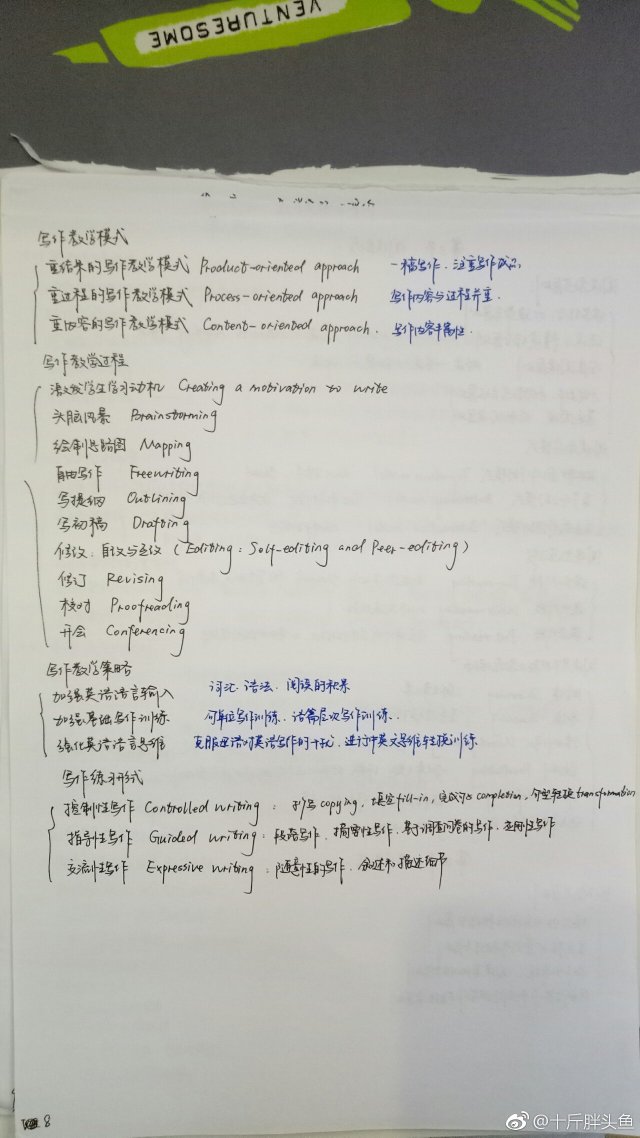 VENTURESOME
写作教学模式
重结果的写作教学模式 Product-oriented approach 一稿写作、注重写作成品
重过程的写作教学模式 Process-oriented approach 写作内容与过程并重
重内容的写作教学模式 Content-oriented approach、写作内容
写作教学过程
激发学生学习动机 Creating a motivation to write
头脑风暴 Brainstorming
绘制思路图 Mapping
自由写作 Freewriting
写提纲 Outlining
写初稿 Drafting
修改:自改与互改 (Editing: Self-editing and Peer-editing)
修订 Revising
校对 Proofreading
开会 Conferencing
写作教学策略
加强英语语言输入 词汇、语法、阅读的积累
加强基础写作训练 句单位写作训练、语篇层次写作训练
强化英语语言思维 克服母语对英语写作的干扰、进行中英文思维转换训练
写作练习形式
控制性写作 Controlled writing: 抄写copying, 填空fill-in, 完成句子completion, 句型转换transformation
指导性写作 Guided writing: 段落写作、摘要性写作、基于调查问卷的写作、应用性写作
交流性写作 Expressive writing: 随意性的写作、叙述和描述细节
8
@十斤胖头鱼